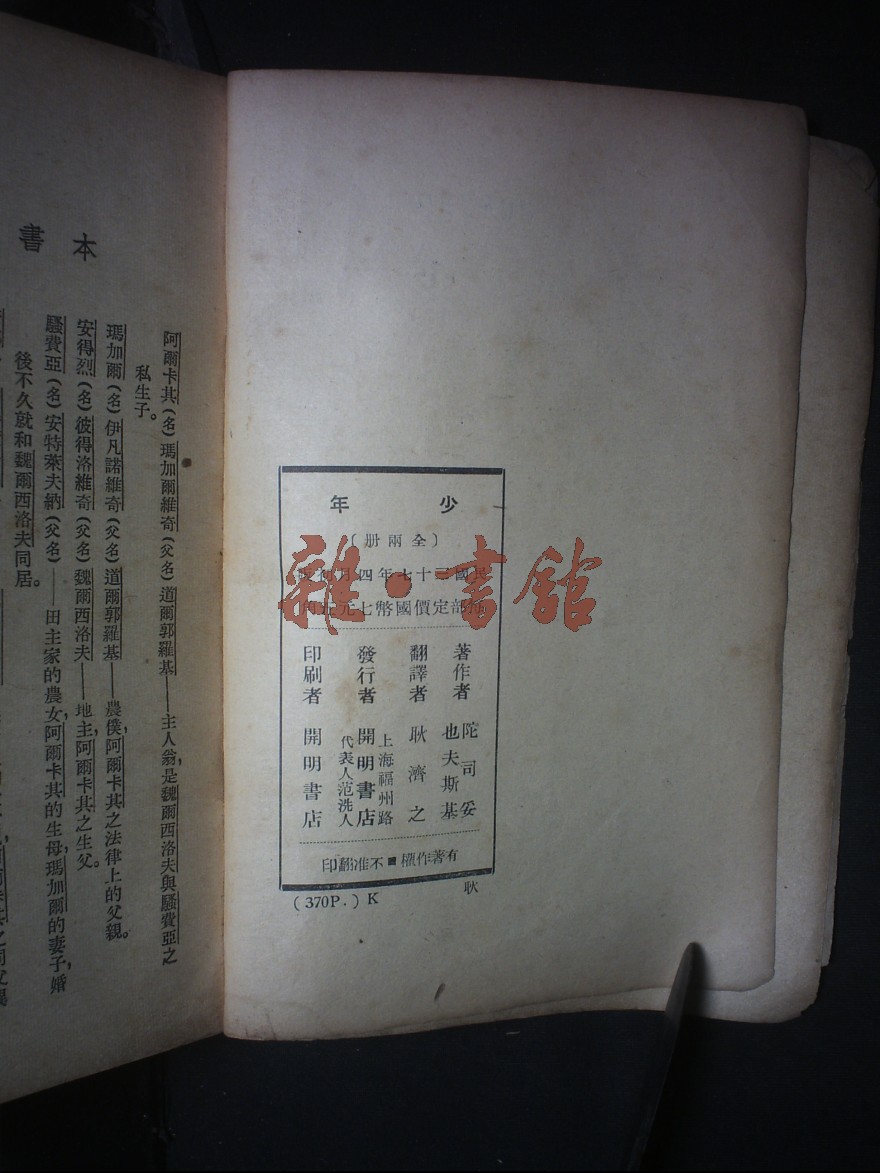 本書
阿爾卡其(名)瑪加爾維奇(父名)道爾郭羅基——主人翁,是魏爾西洛夫與騷費亞之
私生子。
瑪加爾(名)伊凡諾維奇(父名)道爾郭羅基——農僕,阿爾卡其之法律上的父親。
安得烈(名)彼得洛維奇(父名)魏爾西洛夫——地主,阿爾卡其之生父。
騷費亞(名)安特萊夫納(父名)——田主家的農女,阿爾卡其的生母,瑪加爾的妻子,婚
後不久就和魏爾西洛夫同居。
少年
〔全兩册〕
民國三十七年四月初版
每部定價國幣七元五角
著作者 陀司妥也夫斯基
翻譯者 耿濟之
發行者 上海福州路 開明書店 代表人范洗人
印刷者 開明書店
有著作權■不准翻印
(370P.) K
耿
雜·書館